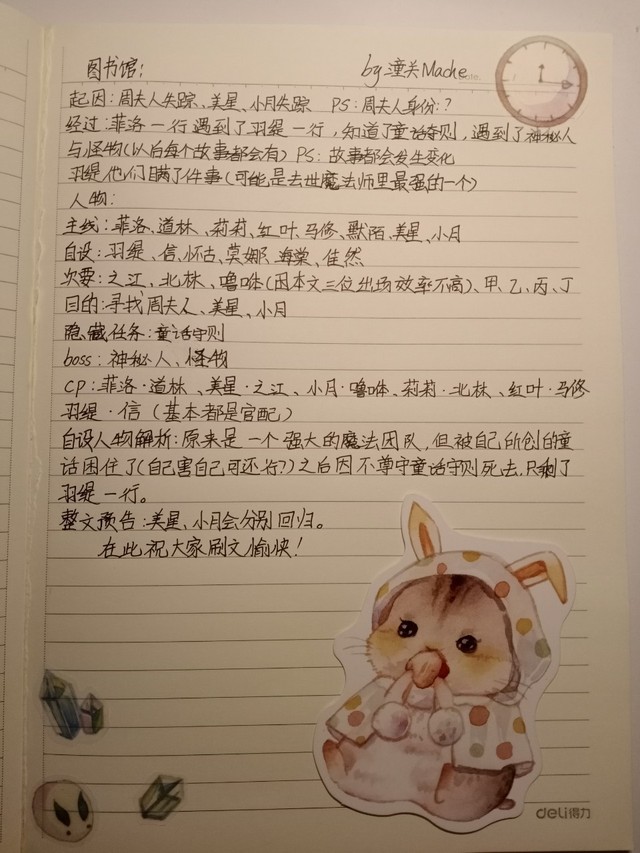 图书馆: by 潼关Mache
起因:周夫人失踪、美星、小月失踪 PS:周夫人身份:?
经过:菲洛一行遇到了羽缇一行,知道了童话守则,遇到了神秘人
与怪物(以后每个故事都会有) PS:故事都会发生变化
羽缇他们瞒了件事(可能是去世魔法师里最强的一个)
人物:
主线:菲洛、道林、莉莉、红叶、马修、默陌、美星、小月
自设:羽缇、信、怀古、莫娜、海棠、佳然
次要:之江、北林、噜咻(因本文三位出场效率不高)、甲、乙、丙、丁
目的:寻找周夫人、美星、小月
隐藏任务:童话守则
boss:神秘人、怪物
CP:菲洛·道林、美星·之江、小月·噜咻、莉莉·北林、红叶·马修
羽缇·信(基本都是官配)
自设人物解析:原来是一个强大的魔法团队,但被自己所创的童
话困住了(自己害自己可还行?)之后因不尊守童话守则死去,只剩了
羽缇一行。
整文预告:美星、小月会分别回归。
在此祝大家刷文愉快!
deli得力